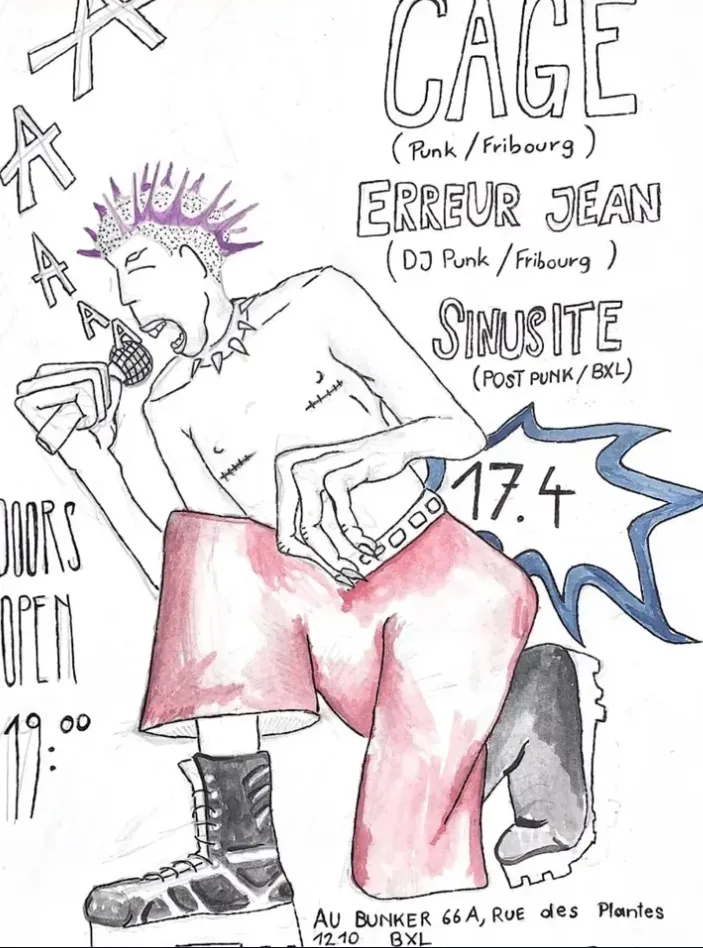 A
A
A
A
A
CAGE
(Punk/Fribourg)
ERREUR JEAN
(DJ Punk/Fribourg)
SINUSITE
(POST PUNK/BXL)
17.4
DOORS
OPEN
19:00
AU BUNKER 66A, RUE des Plantes
1210 BXL